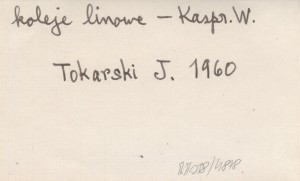 koleje linowe – Kaspr. W.
Tokarski J. 1960